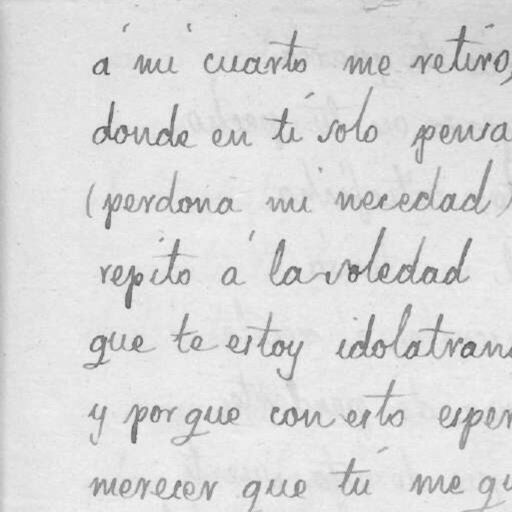 á mi cuarto me retiro,
donde en tí solo pensa
(perdona mi necedad)
repito á la soledad
que te estoy idolatran
y porque con esto esper
merecer que tú me qu